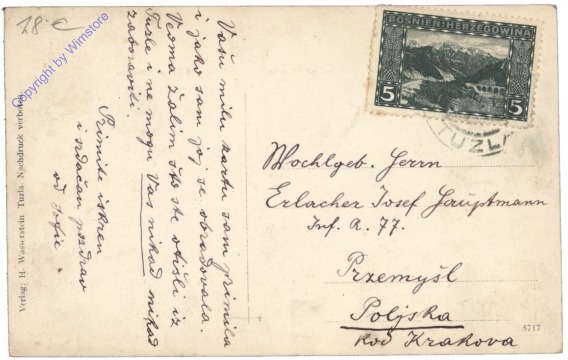 18 €
Copyright by Wimstore
Vašu milu kartu sam primila
i jako sam joj se obradovala.
Veoma žalim što ste otišli iz
Tuzle i ne mogu Vas nikad nikad
zaboraviti.
Primite iskren
i srdačan pozdrav
od Sofie.
Verlag: H. Wasserstein Tuzla. Nachdruck verboten.
BOSNIEN-HERZEGOWINA
5 5
TUZLA
Wochlgeb. Herrn
Erlacher Josef Hauptmann
Inf. R. 77.
Przemyśl
Poljska
kod Krakova
5717